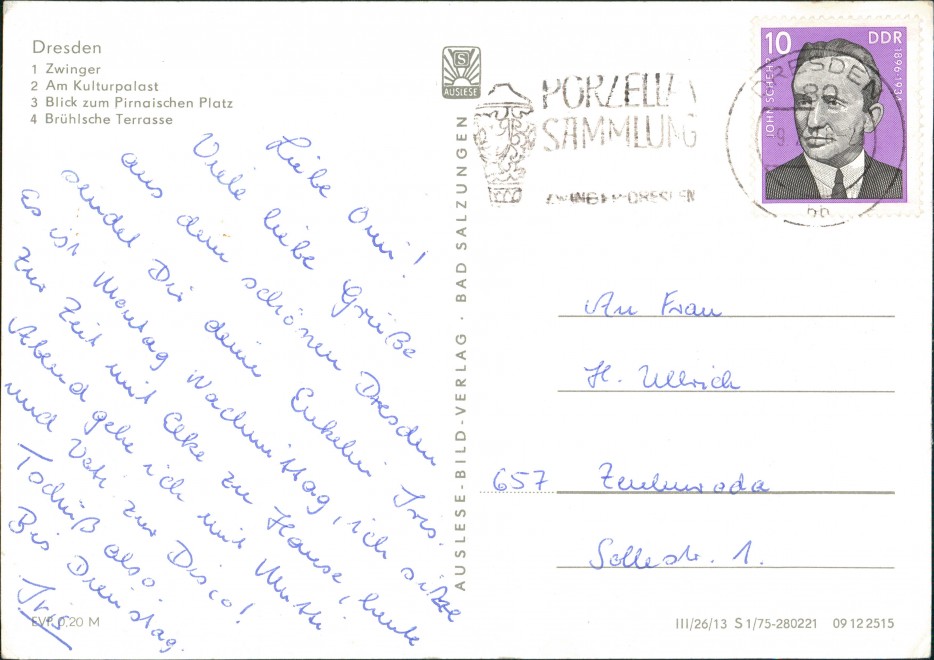 Dresden
1 Zwinger
2 Am Kulturpalast
3 Blick zum Pirnaischen Platz
4 Brühlsche Terrasse
Liebe Omi!
Viele liebe Grüße
aus dem schönen Dresden
sendet Dir deine Enkelin Iris.
Es ist Montag Nachmittag, ich sitze
zur Zeit mit Elke zu Hause, heute
Abend gehe ich mit Mutti
und Vati zur Disco!
Tschüß also.
Bis Dienstag.
Iris
EVP 0,20 M
S
AUSLESE
AUSLESE-BILD-VERLAG · BAD SALZUNGEN
PORZELLAN
SAMMLUNG
ZWINGER DRESDEN
DRESDEN
10
DDR
JOHN SCHEHR
1896-1934
An Frau
H. Ullrich
657
Sollestr. 1.
III/26/13 S 1/75-280221 09 12 2515